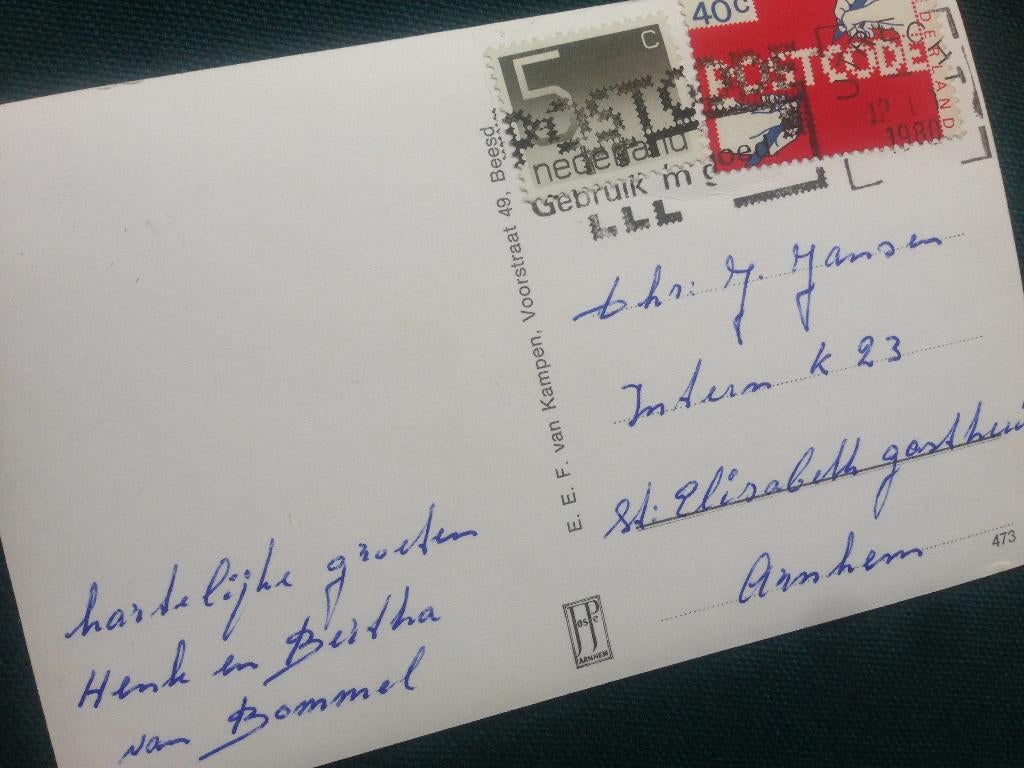 5 c
nederland
40c
POSTCODE
NEDERLAND
POSTCODE
Gebruik 'm goed
1980
E. E. F. van Kampen, Voorstraat 49, Beesd.
dhr: J. Jansen
Intern k 23
St: Elisabeth
Arnhem
473
hartelijke groeten
Henk en Bertha
van Bommel
JosPé
ARNHEM